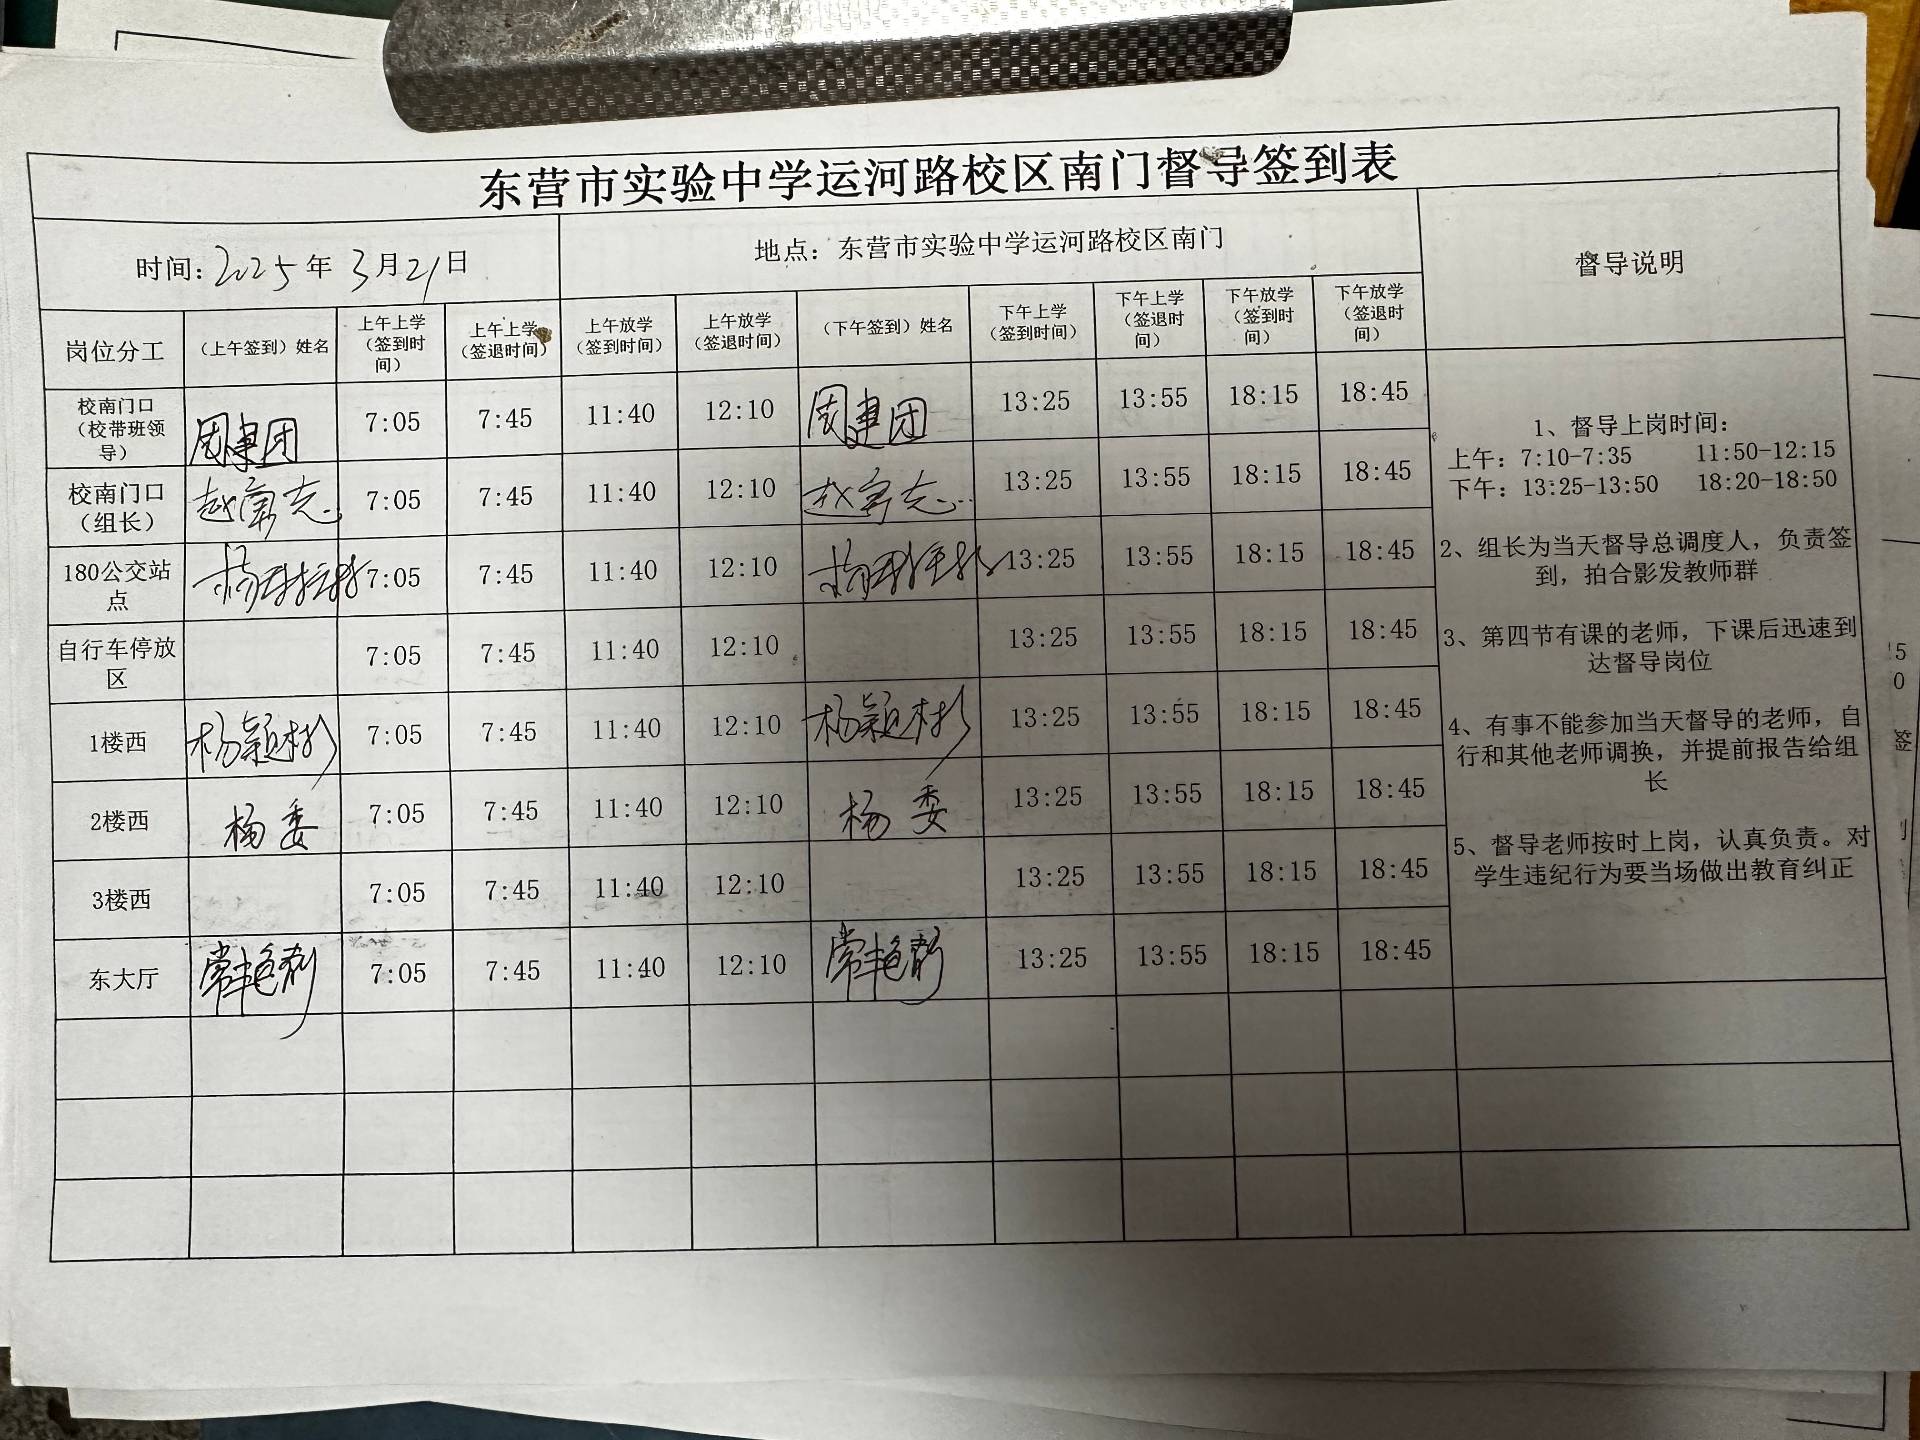 东营市实验中学运河路校区南门督导签到表
时间：2025年 3月21日 地点：东营市实验中学运河路校区南门 督导说明
岗位分工 （上午签到）姓名 上午上学（签到时间） 上午上学（签退时间） 上午放学（签到时间） 上午放学（签退时间） （下午签到）姓名 下午上学（签到时间） 下午上学（签退时间） 下午放学（签到时间） 下午放学（签退时间）
校南门口（校带班领导） 周建团 7:05 7:45 11:40 12:10 周建团 13:25 13:55 18:15 18:45
校南门口（组长） 7:05 7:45 11:40 12:10 13:25 13:55 18:15 18:45
180公交站点 7:05 7:45 11:40 12:10 13:25 13:55 18:15 18:45
自行车停放区 7:05 7:45 11:40 12:10 13:25 13:55 18:15 18:45
1楼西 杨颖彬 7:05 7:45 11:40 12:10 杨颖彬 13:25 13:55 18:15 18:45
2楼西 杨委 7:05 7:45 11:40 12:10 杨委 13:25 13:55 18:15 18:45
3楼西 7:05 7:45 11:40 12:10 13:25 13:55 18:15 18:45
东大厅 7:05 7:45 11:40 12:10 13:25 13:55 18:15 18:45
1、督导上岗时间：
上午：7:10-7:35 11:50-12:15
下午：13:25-13:50 18:20-18:50
2、组长为当天督导总调度人，负责签
到，拍合影发教师群
3、第四节有课的老师，下课后迅速到
达督导岗位
4、有事不能参加当天督导的老师，自
行和其他老师调换，并提前报告给组
长
5、督导老师按时上岗，认真负责。对
学生违纪行为要当场做出教育纠正